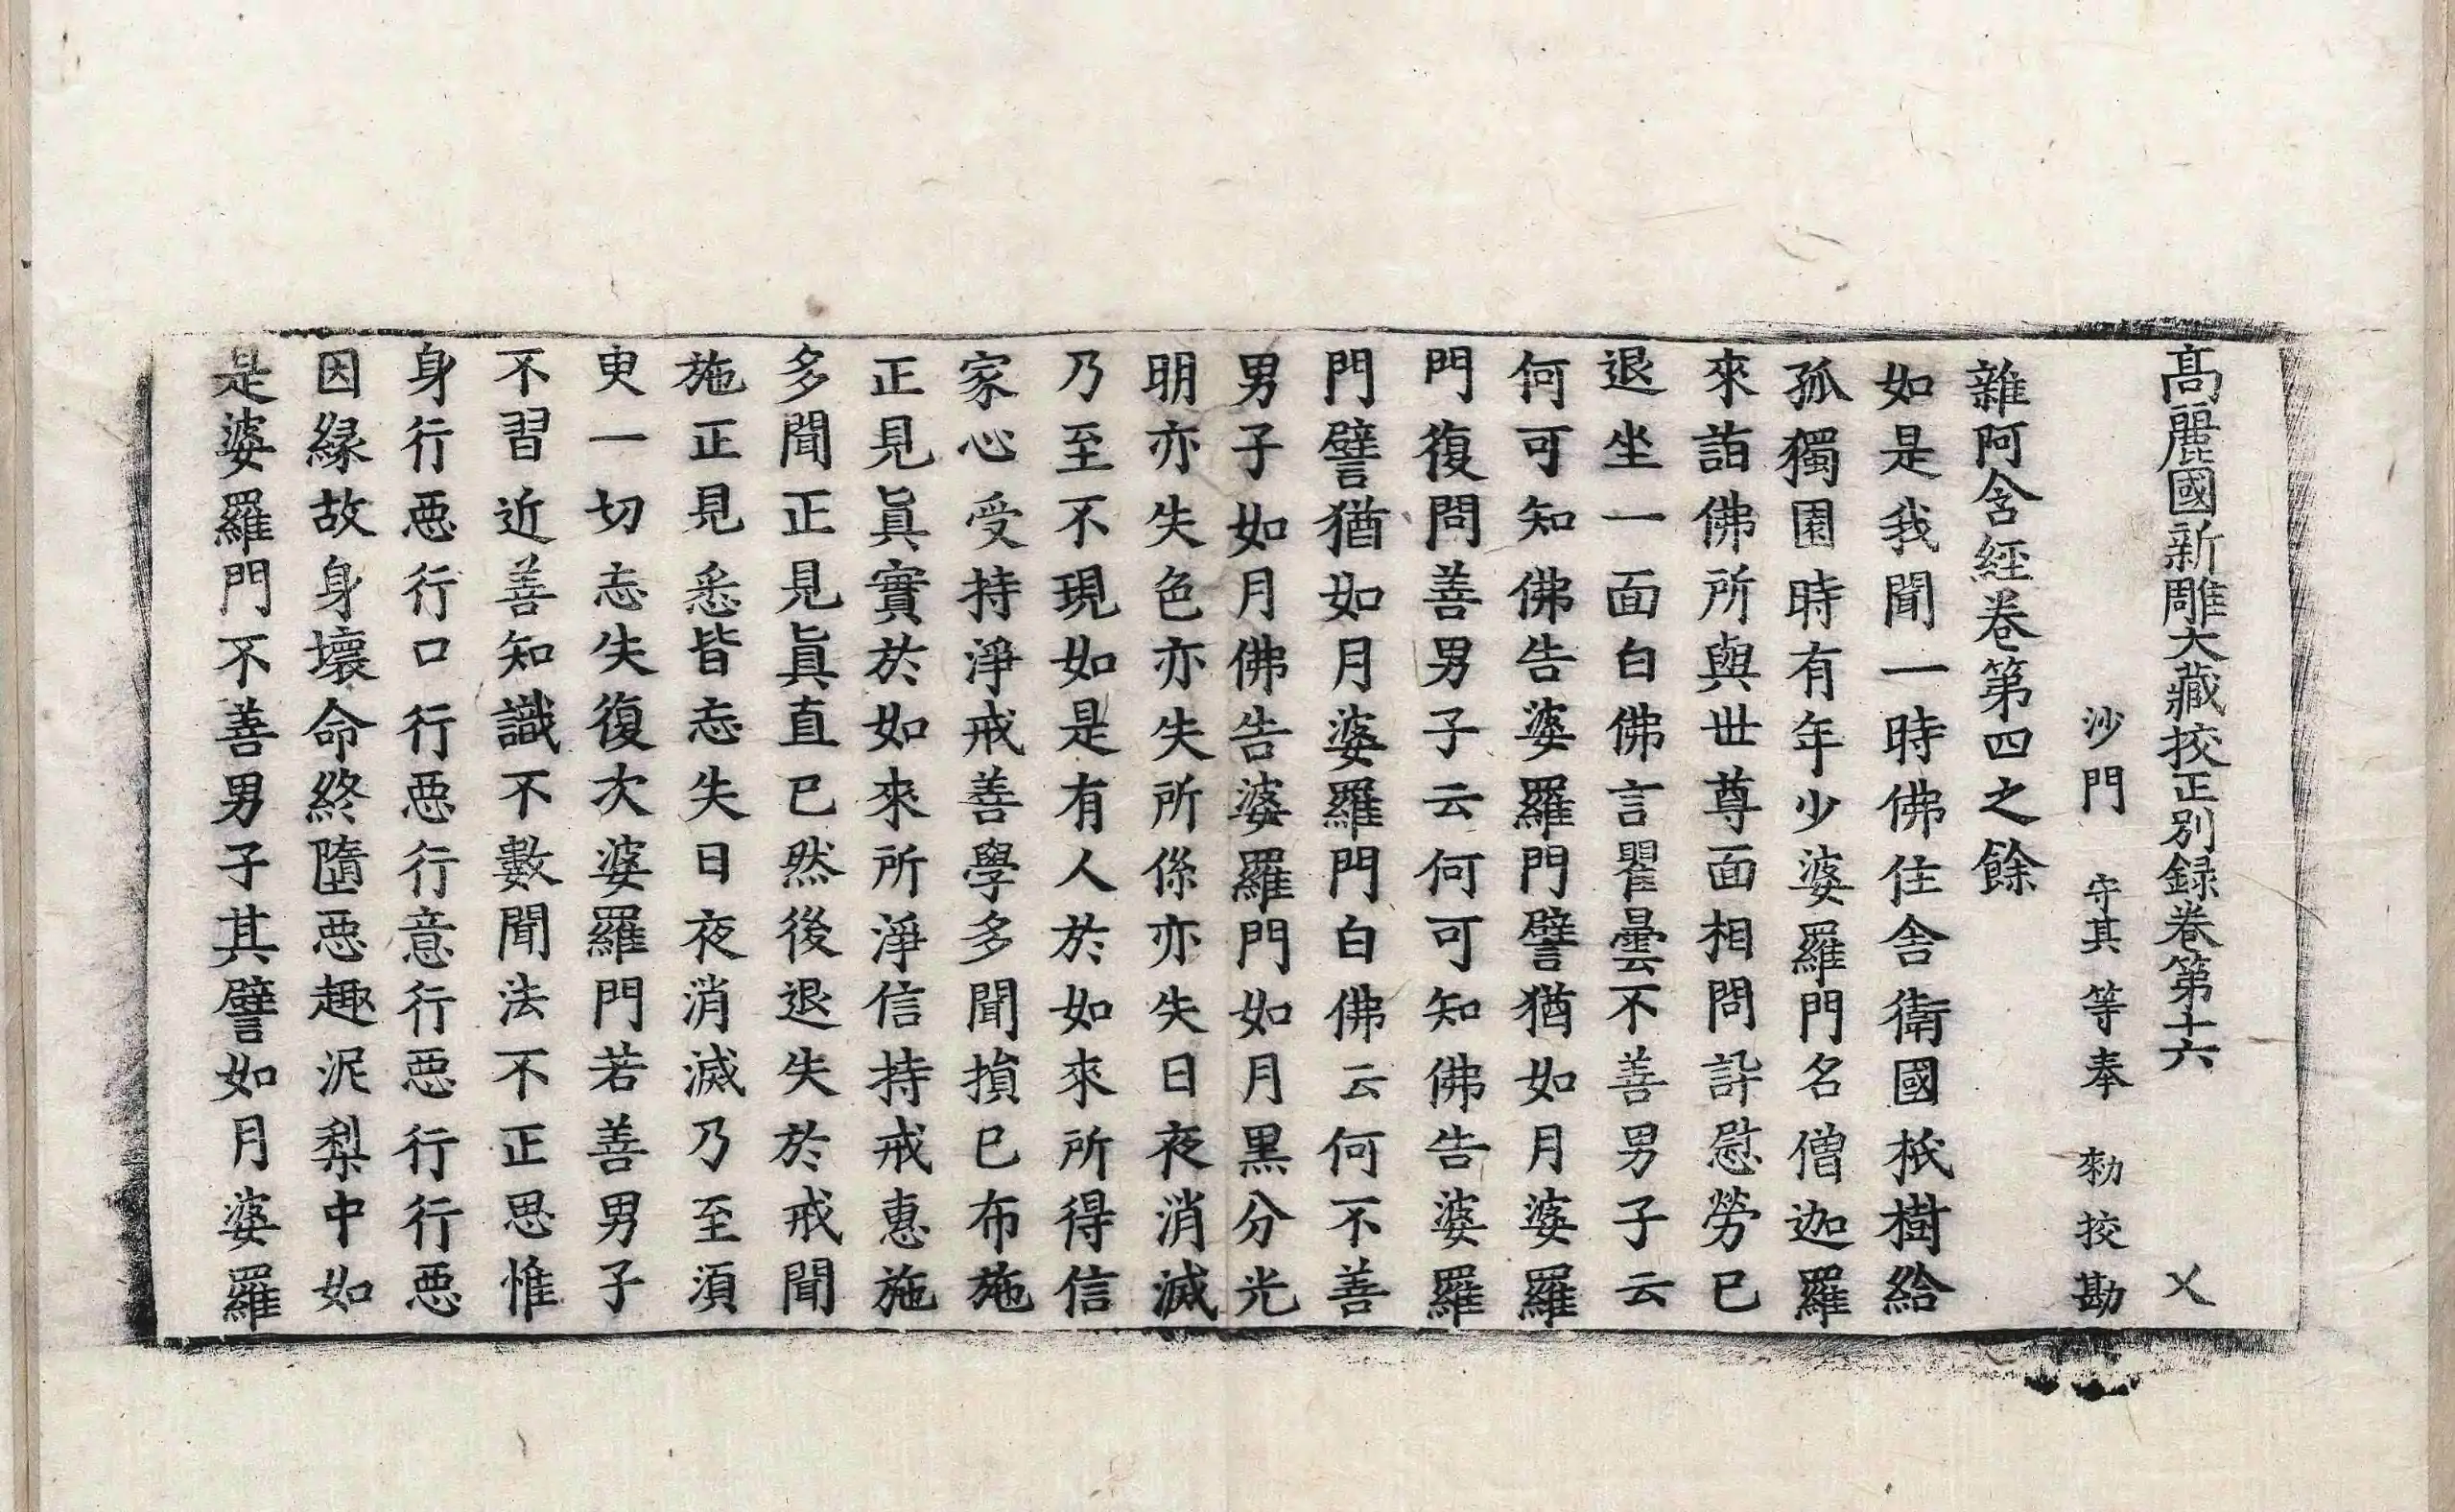 高麗國新雕大藏挍正別録卷第十六 乂
沙門 守其 等 奉 勑挍勘
雜阿含經卷第四之餘
如是我聞一時佛住舍衛國祇樹給
孤獨園時有年少婆羅門名僧迦羅
來詣佛所與世尊面相問訊慰勞已
退坐一面白佛言瞿曇不善男子云
何可知佛告婆羅門譬猶如月婆羅
門復問善男子云何可知佛告婆羅
門譬猶如月婆羅門白佛云何不善
男子如月佛告婆羅門如月黑分光
明亦失色亦失所係亦失日夜消滅
乃至不現如是有人於如來所得信
家心受持淨戒善學多聞損已布施
正見眞實於如來所淨信持戒惠施
多聞正見眞直已然後退失於戒聞
施正見悉皆忘失日夜消滅乃至須
臾一切忘失復次婆羅門若善男子
不習近善知識不數聞法不正思惟
身行惡行口行惡行意行惡行行惡
因縁故身壞命終墮惡趣泥梨中如
是婆羅門不善男子其譬如月婆羅